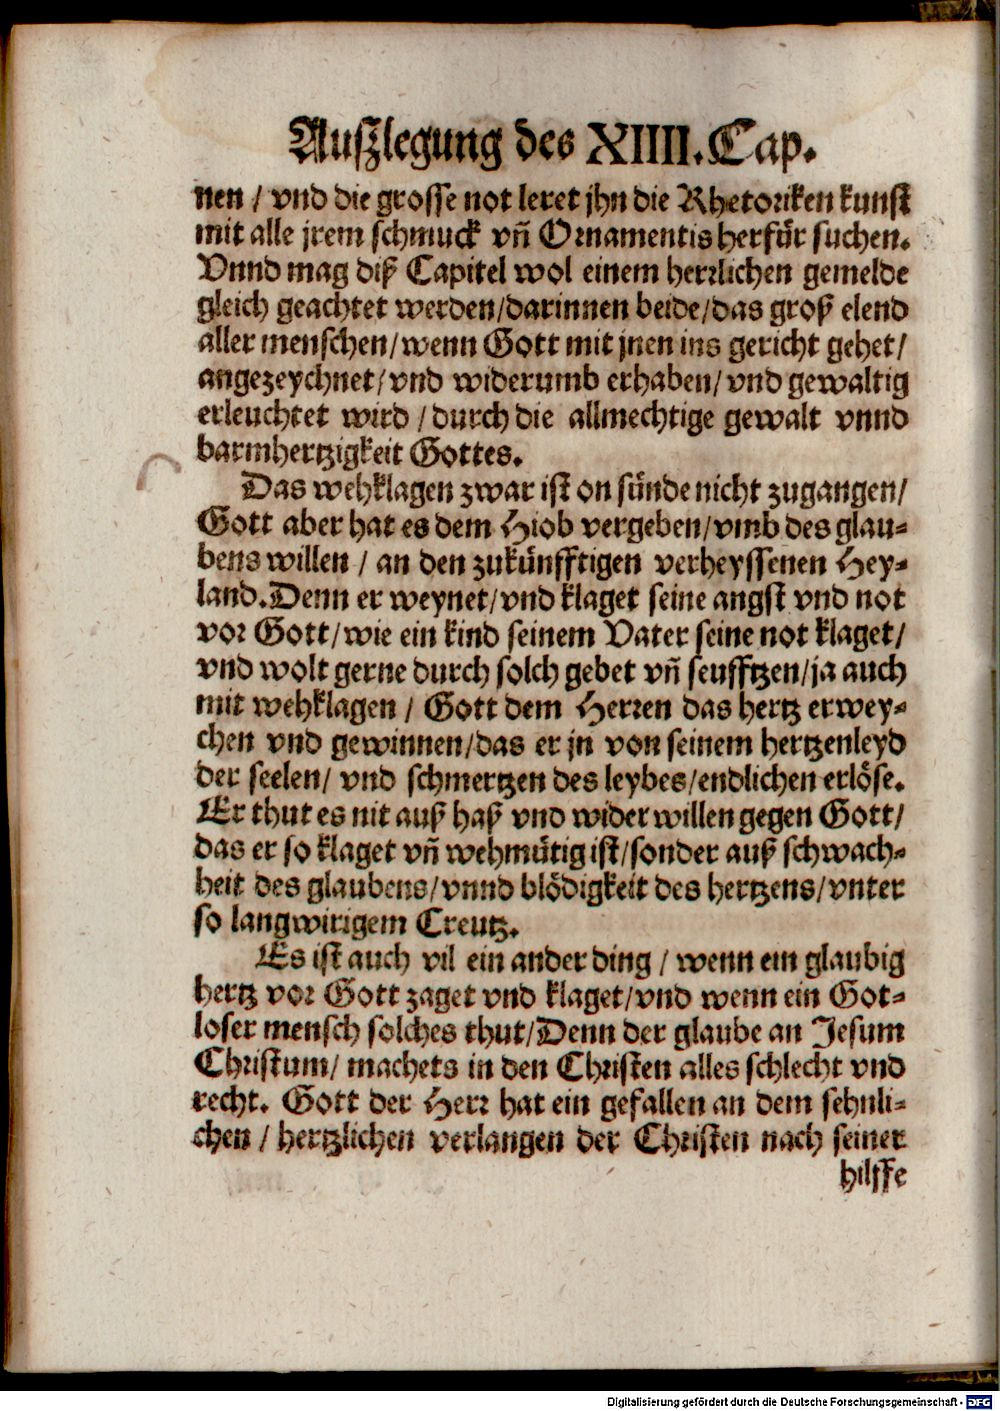 Auſzlegung des XIIII. Cap.
nen / vnd die groſſe not leret jhn die Rhetoriken kunſt
mit alle jrem ſchmuck vñ Ornamentis herfür ſuchen.
Vnnd mag diß Capitel wol einem herrlichen gemelde
gleich geachtet werden/darinnen beide/das groß elend
aller menſchen/wenn Gott mit jnen ins gericht gehet/
angezeychnet/vnd widerumb erhaben/vnd gewaltig
erleuchtet wird /durch die allmechtige gewalt vnnd
barmhertzigkeit Gottes.
Das wehklagen zwar iſt on ſünde nicht zugangen/
Gott aber hat es dem Hiob vergeben/vmb des glau-
bens willen / an den zukünfftigen verheyſſenen Hey-
land.Denn er weynet/vnd klaget ſeine angſt vnd not
vor Gott/wie ein kind ſeinem Vater ſeine not klaget/
vnd wolt gerne durch ſolch gebet vñ ſeufftzen/ja auch
mit wehklagen / Gott dem Herren das hertz erwey-
chen vnd gewinnen/das er jn von ſeinem hertzenleyd
der ſeelen/ vnd ſchmertzen des leybes/endlichen erlöſe.
Er thut es nit auß haß vnd wider willen gegen Gott/
das er ſo klaget vñ wehmütig iſt/ſonder auß ſchwach-
heit des glaubens/vnnd blödigkeit des hertzens/vnter
ſo langwirigem Creutz.
Es iſt auch vil ein ander ding / wenn ein glaubig
hertz vor Gott zaget vnd klaget/vnd wenn ein Got-
loſer menſch ſolches thut/Denn der glaube an Jeſum
Chriſtum/ machets in den Chriſten alles ſchlecht vnd
recht. Gott der Herr hat ein gefallen an dem ſehnli-
chen / hertzlichen verlangen der Chriſten nach ſeiner
hilffe
Digitalisierung gefördert durch die Deutsche Forschungsgemeinschaft - DFG